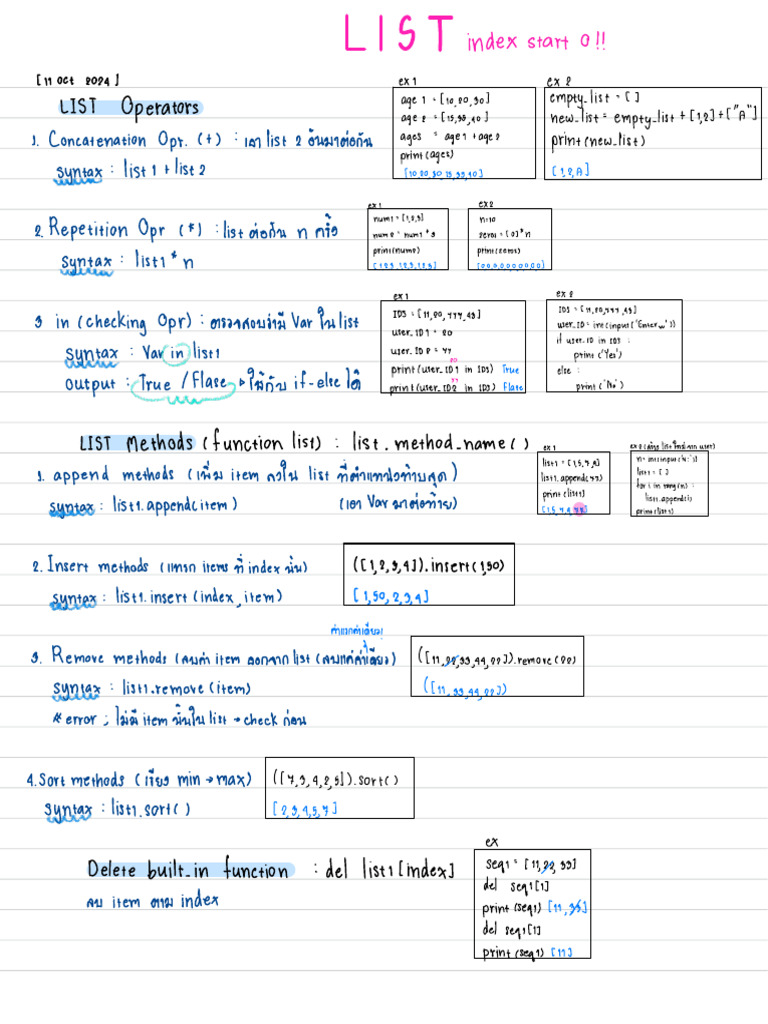 LIST index start 0!!
[11 oct 2024]
LIST Operators
1. Concatenation Opr. (+) : เอา list 2 อันมาต่อกัน
syntax : list1 + list2
ex 1
age 1 = [10,20,30]
age 2 = [15,35,40]
ages = age 1 + age 2
print(ages)
[10,20,30,15,35,40]
ex 2
empty_list = [ ]
new_list = empty_list + [1,2] + ["A"]
print(new_list)
[1,2,A]
2. Repetition Opr (*) : list ต่อกัน n ครั้ง
syntax : list1 * n
ex 1
num1 = [1,2,3]
num2 = num1 * 3
print(num2)
[1,2,3,1,2,3,1,2,3]
ex2
n=10
zeros = [0]*n
print(zeros)
3 in (checking Opr) : ตรวจสอบว่ามี Var ใน list
syntax : Var in list1
output : True / Flase ใช้กับ if-else ได้
ex 1
IDS = [11,20,777,43]
user_ID1 = 20
user_ID2 = 77
20
print(user_ID1 in IDS) True
77
print(user_ID2 in IDS) Flase
ex 2
IDS = [11,20,777,43]
user_ID = int(input('Enter...'))
if user_ID in IDS :
print('Yes')
else :
print('No')
LIST Methods (function list) : list.method_name()
1. append methods (เพิ่ม item ลงใน list ที่ตำแหน่งท้ายสุด)
syntax : list1.append(item) (เอา Var มาต่อท้าย)
ex 1
list1 = [1,5,7,4]
list1.append(77)
print(list1)
[1,5,7,4,77]
list1 = [ ]
for i in rang(n) :
list1.append(i)
print(list1)
2. Insert methods (แทรก items ที่ index นั้น)
syntax : list1.insert(index, item)
([1,2,3,4]).insert(1,50)
[1,50,2,3,4]
ค่าแรกค่าเดียว!
3. Remove methods (ลบค่า item ออกจาก list (ลบแค่ค่าเดียว)
syntax : list1.remove(item)
* error ; ไม่มี item นั้นใน list → check ก่อน
([11,22,33,44,22]).remove(22)
([11,33,44,22])
4. Sort methods (เรียง min → max)
syntax : list1.sort()
([7,3,4,2,5]).sort()
[2,3,4,5,7]
Delete built_in function : del list1[index]
ลบ item ตาม index
ex
seq1 = [11,22,33]
del seq1[1]
print(seq1) [11,33]
del seq1[1]
print(seq1) [11]